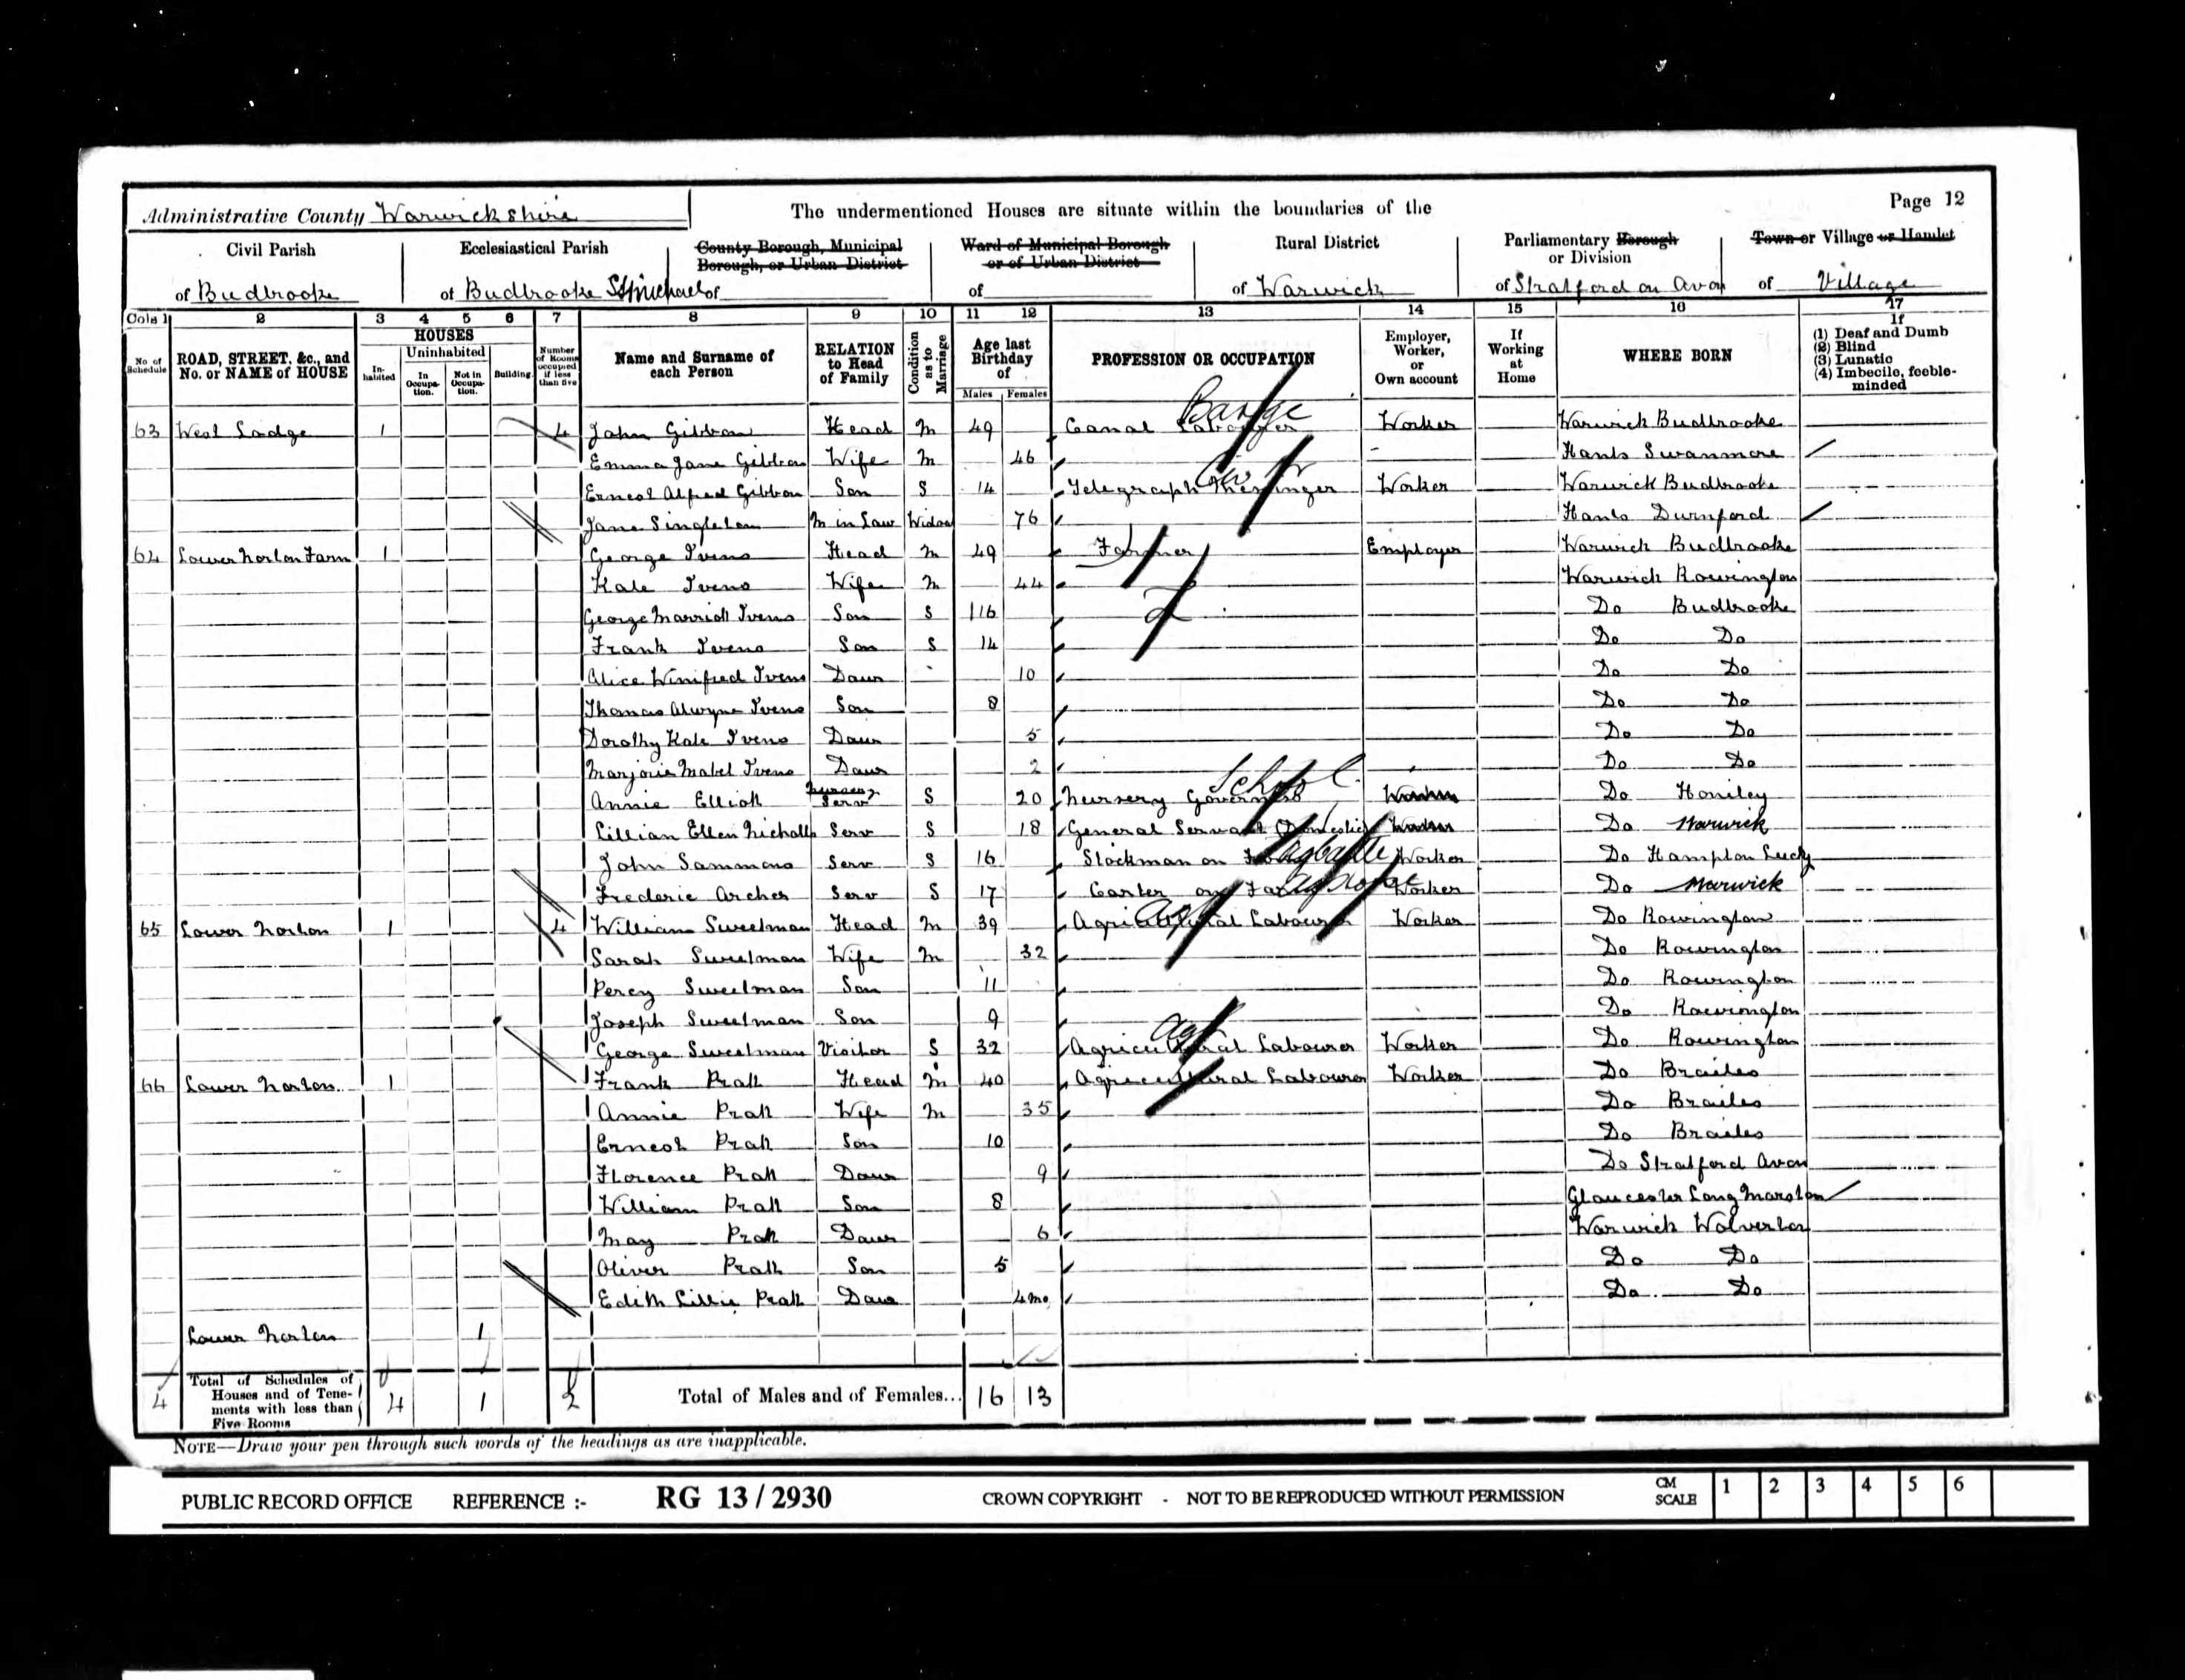 Administrative County Warwickshire
The undermentioned Houses are situate within the boundaries of the
Page 12
Civil Parish
of Budbrooke
Ecclesiastical Parish
of Budbrooke St Michael
County Borough, Municipal
Borough, or Urban District
of
Ward of Municipal Borough
or of Urban District
of
Rural District
of Warwick
Parliamentary Borough
or Division
of Stratford on Avon
Town or Village or Hamlet
of Village
Cols 1 2 3 4 5 6 7 8 9 10 11 12 13 14 15 16 17
No of Schedule
ROAD, STREET, &c., and
No. or NAME of HOUSE
HOUSES
In-habited
Uninhabited
In Occupa-tion.
Not in Occupa-tion.
Building
Number of Rooms occupied if less than five
Name and Surname of
each Person
RELATION
to Head
of Family
Condition as to Marriage
Age last
Birthday
of
Males Females
PROFESSION OR OCCUPATION
Employer,
Worker,
or
Own account
If
Working
at
Home
WHERE BORN
If
(1) Deaf and Dumb
(2) Blind
(3) Lunatic
(4) Imbecile, feeble-
minded
Barge
63 West Lodge 1 4 John Gibbon Head M 49 Canal Labourer Worker Warwick Budbrooke
Emma Jane Gibbon Wife M 46 - Hants Swanmore
Ernest Alfred Gibbon Son S 14 Telegraph Messenger Worker Warwick Budbrooke
Jane Singleton M in Law Widow 76 Hants Durnford
64 Lower Norton Farm 1 George Ivens Head M 49 Farmer Employer Warwick Budbrooke
Kate Ivens Wife M 44 Warwick Rowington
George Marriott Ivens Son S 16 Do Budbrooke
Frank Ivens Son S 14 Do Do
Alice Winifred Ivens Daur 10 Do Do
Thomas Alwyne Ivens Son 8 Do Do
Dorothy Kate Ivens Daur 5 Do Do
Marjorie Mabel Ivens Daur 2 Do Do
School
Annie Elliott Serv S 20 Nursery Governess Worker Do Honiley
Lillian Ellen Nicholls Serv S 18 General Servant (Domestic) Worker Do Warwick
agcattle
John Sammons Serv S 16 Stockman on Farm Worker Do Hampton Lucy
ag horse
Frederic Archer Serv S 17 Carter on Farm Worker Do Warwick
Ag
65 Lower Norton 1 4 William Sweetman Head M 39 Agricultural Labourer Worker Do Rowington
Sarah Sweetman Wife M 32 Do Rowington
Percy Sweetman Son 11 Do Rowington
Joseph Sweetman Son 9 Do Rowington
Ag
George Sweetman Visitor S 32 Agricultural Labourer Worker Do Rowington
66 Lower Norton 1 Frank Pratt Head M 40 Agricultural Labourer Worker Do Brailes
Annie Pratt Wife M 35 Do Brailes
Ernest Pratt Son 10 Do Brailes
Florence Pratt Daur 9 Do Stratford Avon
William Pratt Son 8 Gloucester Long Marston
May Pratt Daur 6 Warwick Wolverton
Oliver Pratt Son 5 Do Do
Edith Lillie Pratt Daur 4mo Do Do
Lower Norton 1
4 Total of Schedules of
Houses and of Tene-
ments with less than
Five Rooms
4 1 2 Total of Males and of Females... 16 13
NOTE—Draw your pen through such words of the headings as are inapplicable.
PUBLIC RECORD OFFICE REFERENCE :- RG 13 / 2930 CROWN COPYRIGHT - NOT TO BE REPRODUCED WITHOUT PERMISSION CM SCALE 1 2 3 4 5 6